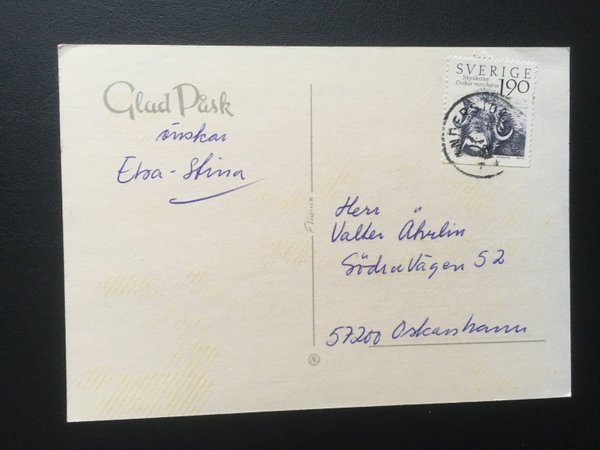 Glad Påsk
önskar
Eva-Stina
SVERIGE
Myskoxe
Ovibos moschatus
1.90
Herr
Valter
Södra Vägen 52
57200 Oskarshamn